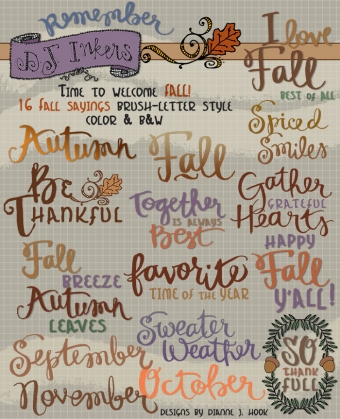 Remember
DJ Inkers
TIME TO WELCOME FALL!
16 FALL SAYINGS BRUSH-LETTER STYLE
COLOR & B&W
I love
Fall
BEST OF ALL
Spiced
Smiles
Autumn
Fall
BE
THANKFUL
Together
IS ALWAYS
Best
Gather
GRATEFUL
Hearts
Fall
BREEZE
favorite
TIME OF THE YEAR
HAPPY
Fall
Y'ALL!
Autumn
LEAVES
Sweater
Weather
September
November
October
SO
THANK
FULL
DESIGNS BY DIANNE J. HOOK